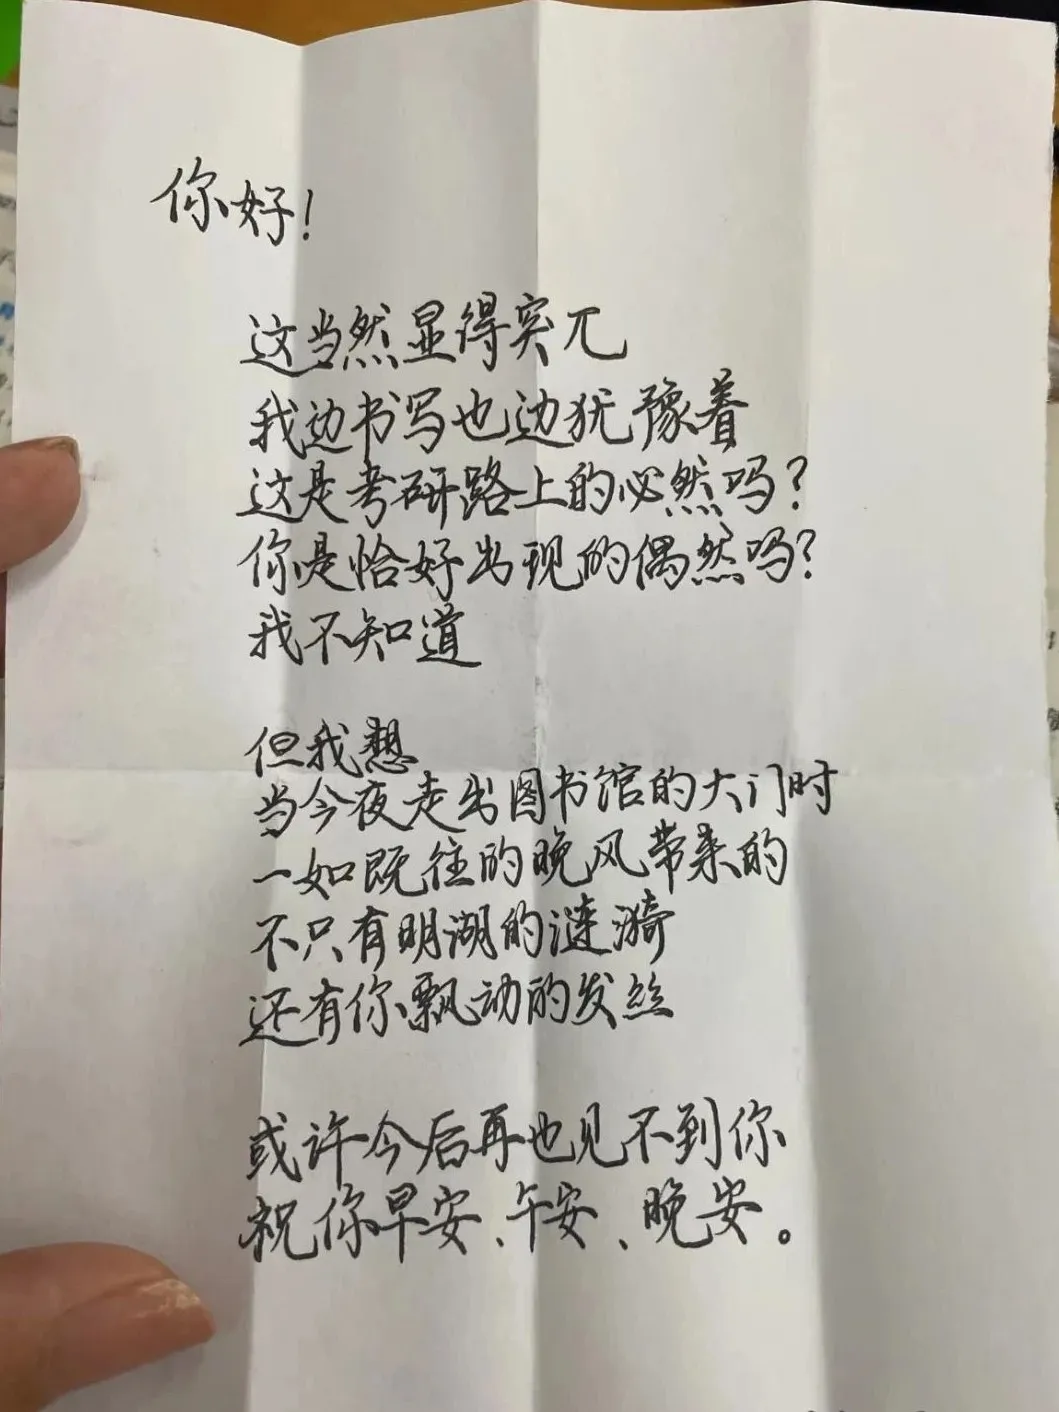 你好！
这当然显得突兀
我边书写也边犹豫着
这是考研路上的必然吗？
你是恰好出现的偶然吗？
我不知道
但我想
当今夜走出图书馆的大门时
一如既往的晚风带来的
不只有明湖的涟漪
还有你飘动的发丝
或许今后再也见不到你
祝你早安、午安、晚安。